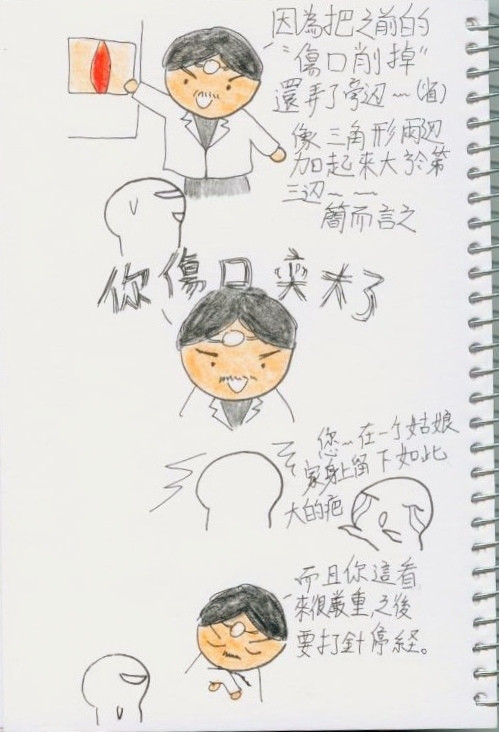 因為把之前的
"傷口削掉"
還弄了旁边~(略)
像三角形兩边
加起來大於第
三边~~
簡而言之
你傷口変大了
您~在一个姑娘
家身上留下如此
大的疤
而且你這看
來很嚴重,之後
要打針停経。